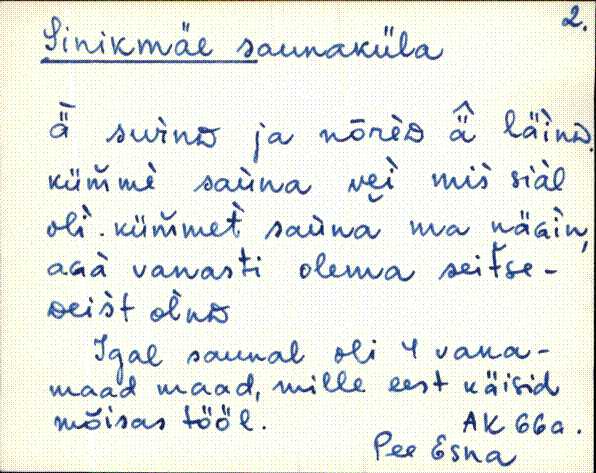 2.
Sinikmäe saunaküla
ä̀ suri̬nᴅ ja nōrèᴅ ä̂ läìnᴅ.
küm̆mè saùna vei mis siàl
oli. küm̆met̀ saùna ma näGìn,
aGà vanasti olema seitse-
ᴅeist olnᴅ
Igal saunal oli 4 vaka-
maad maad, mille eest käisid
mõisas tööl.
AK 66a.
Pee Esna